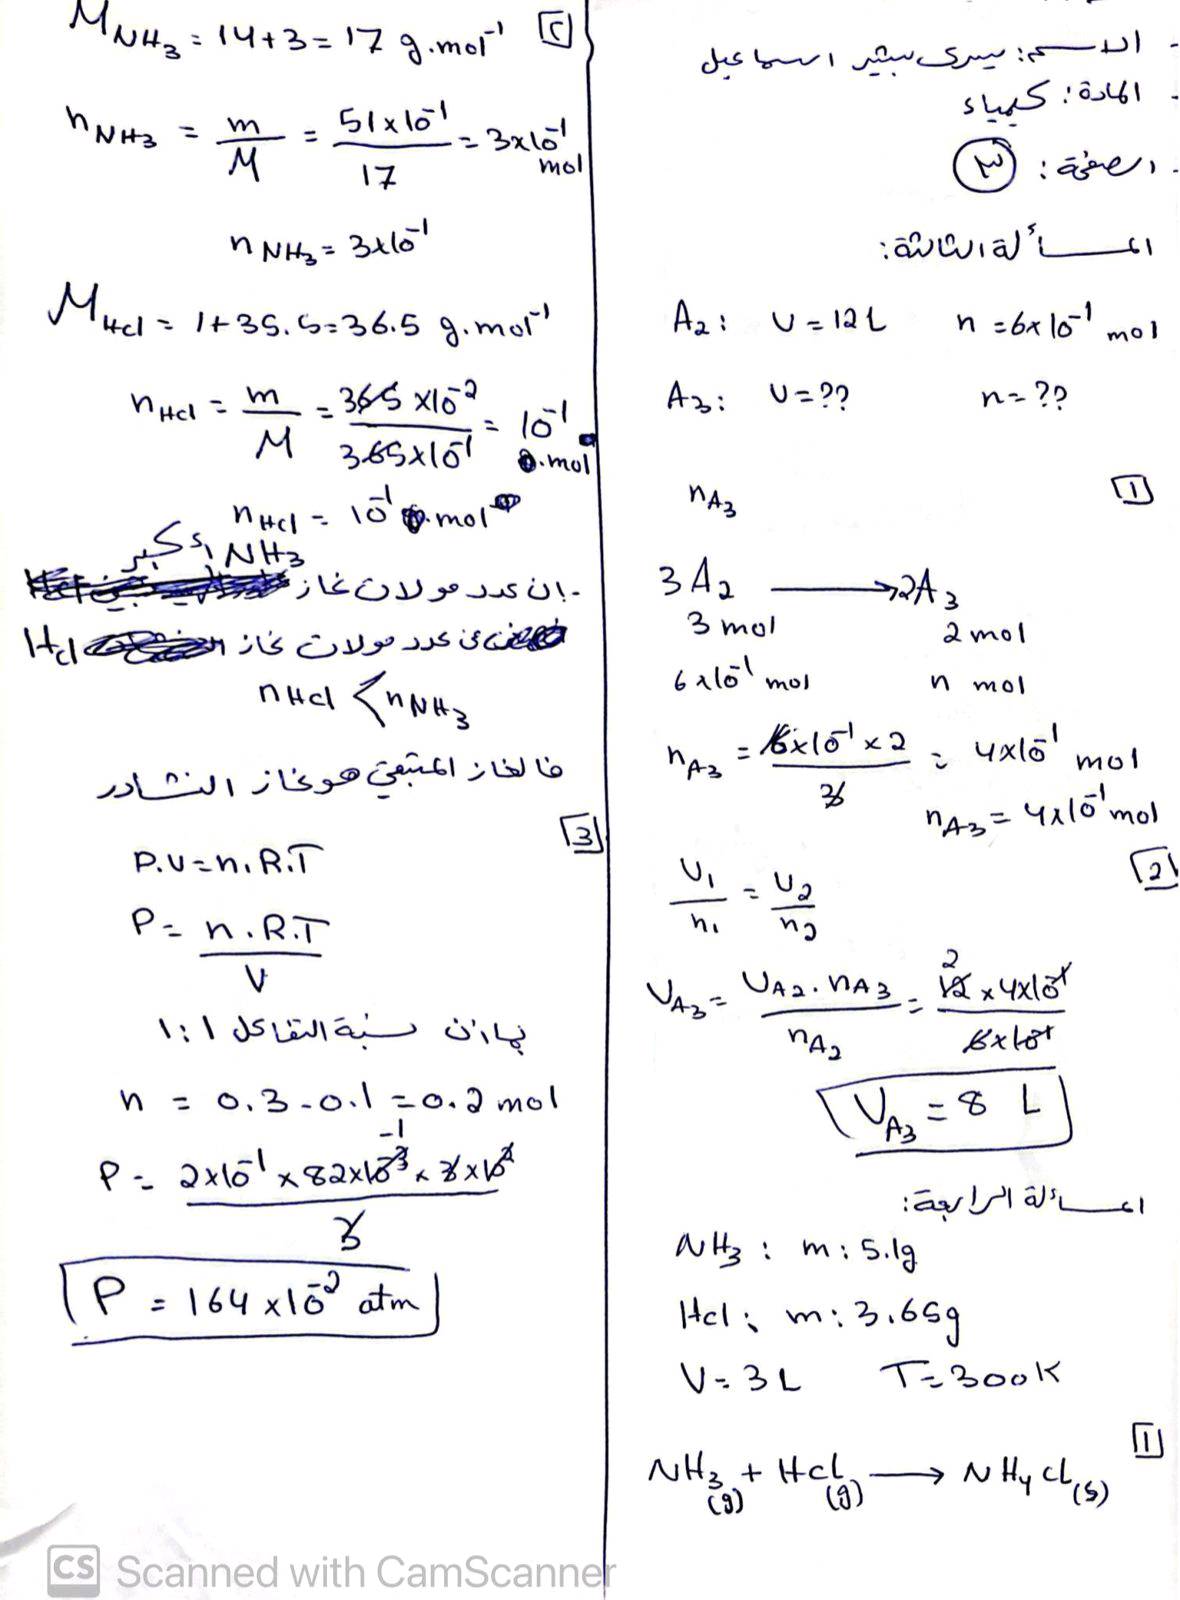 الاسم: يسرى بشير اسماعيل
المادة: كيمياء
الصفحة: ٣
المسألة الثالثة:
A2: V = 12 L n = 6x10^-1 mol
A3: V = ?? n = ??
1
nA3
3A2 → 2A3
3 mol 2 mol
6x10^-1 mol n mol
nA3 = 6x10^-1 x 2 / 3 = 4x10^-1 mol
nA3 = 4x10^-1 mol
2
V1/n1 = V2/n2
VA3 = VA2 . nA3 / nA2 = 12 x 4x10^-1 / 6x10^-1
VA3 = 8 L
المسألة الرابعة:
NH3 : m : 5.1g
Hcl : m : 3.65g
V = 3 L T = 300K
1
NH3(g) + Hcl(g) → NH4cL(s)
2
MNH3 = 14+3 = 17 g.mol^-1
nNH3 = m/M = 51x10^-1 / 17 = 3x10^-1 mol
nNH3 = 3x10^-1
MHcl = 1+35.5=36.5 g.mol^-1
nHcl = m/M = 365 x10^-2 / 365x10^-1 = 10^-1 mol
nHcl = 10^-1 mol
إن عدد مولات غاز NH3 أكبر
من عدد مولات غاز Hcl
nHcl < nNH3
فالغاز المتبقي هو غاز النشادر
3
P.V = n.R.T
P = n.R.T / V
بما أن نسبة التفاعل 1:1
n = 0.3-0.1 = 0.2 mol
P = 2x10^-1 x 82x10^-3 x 3x10^2 / 3
P = 164 x10^-2 atm
CS Scanned with CamScanner